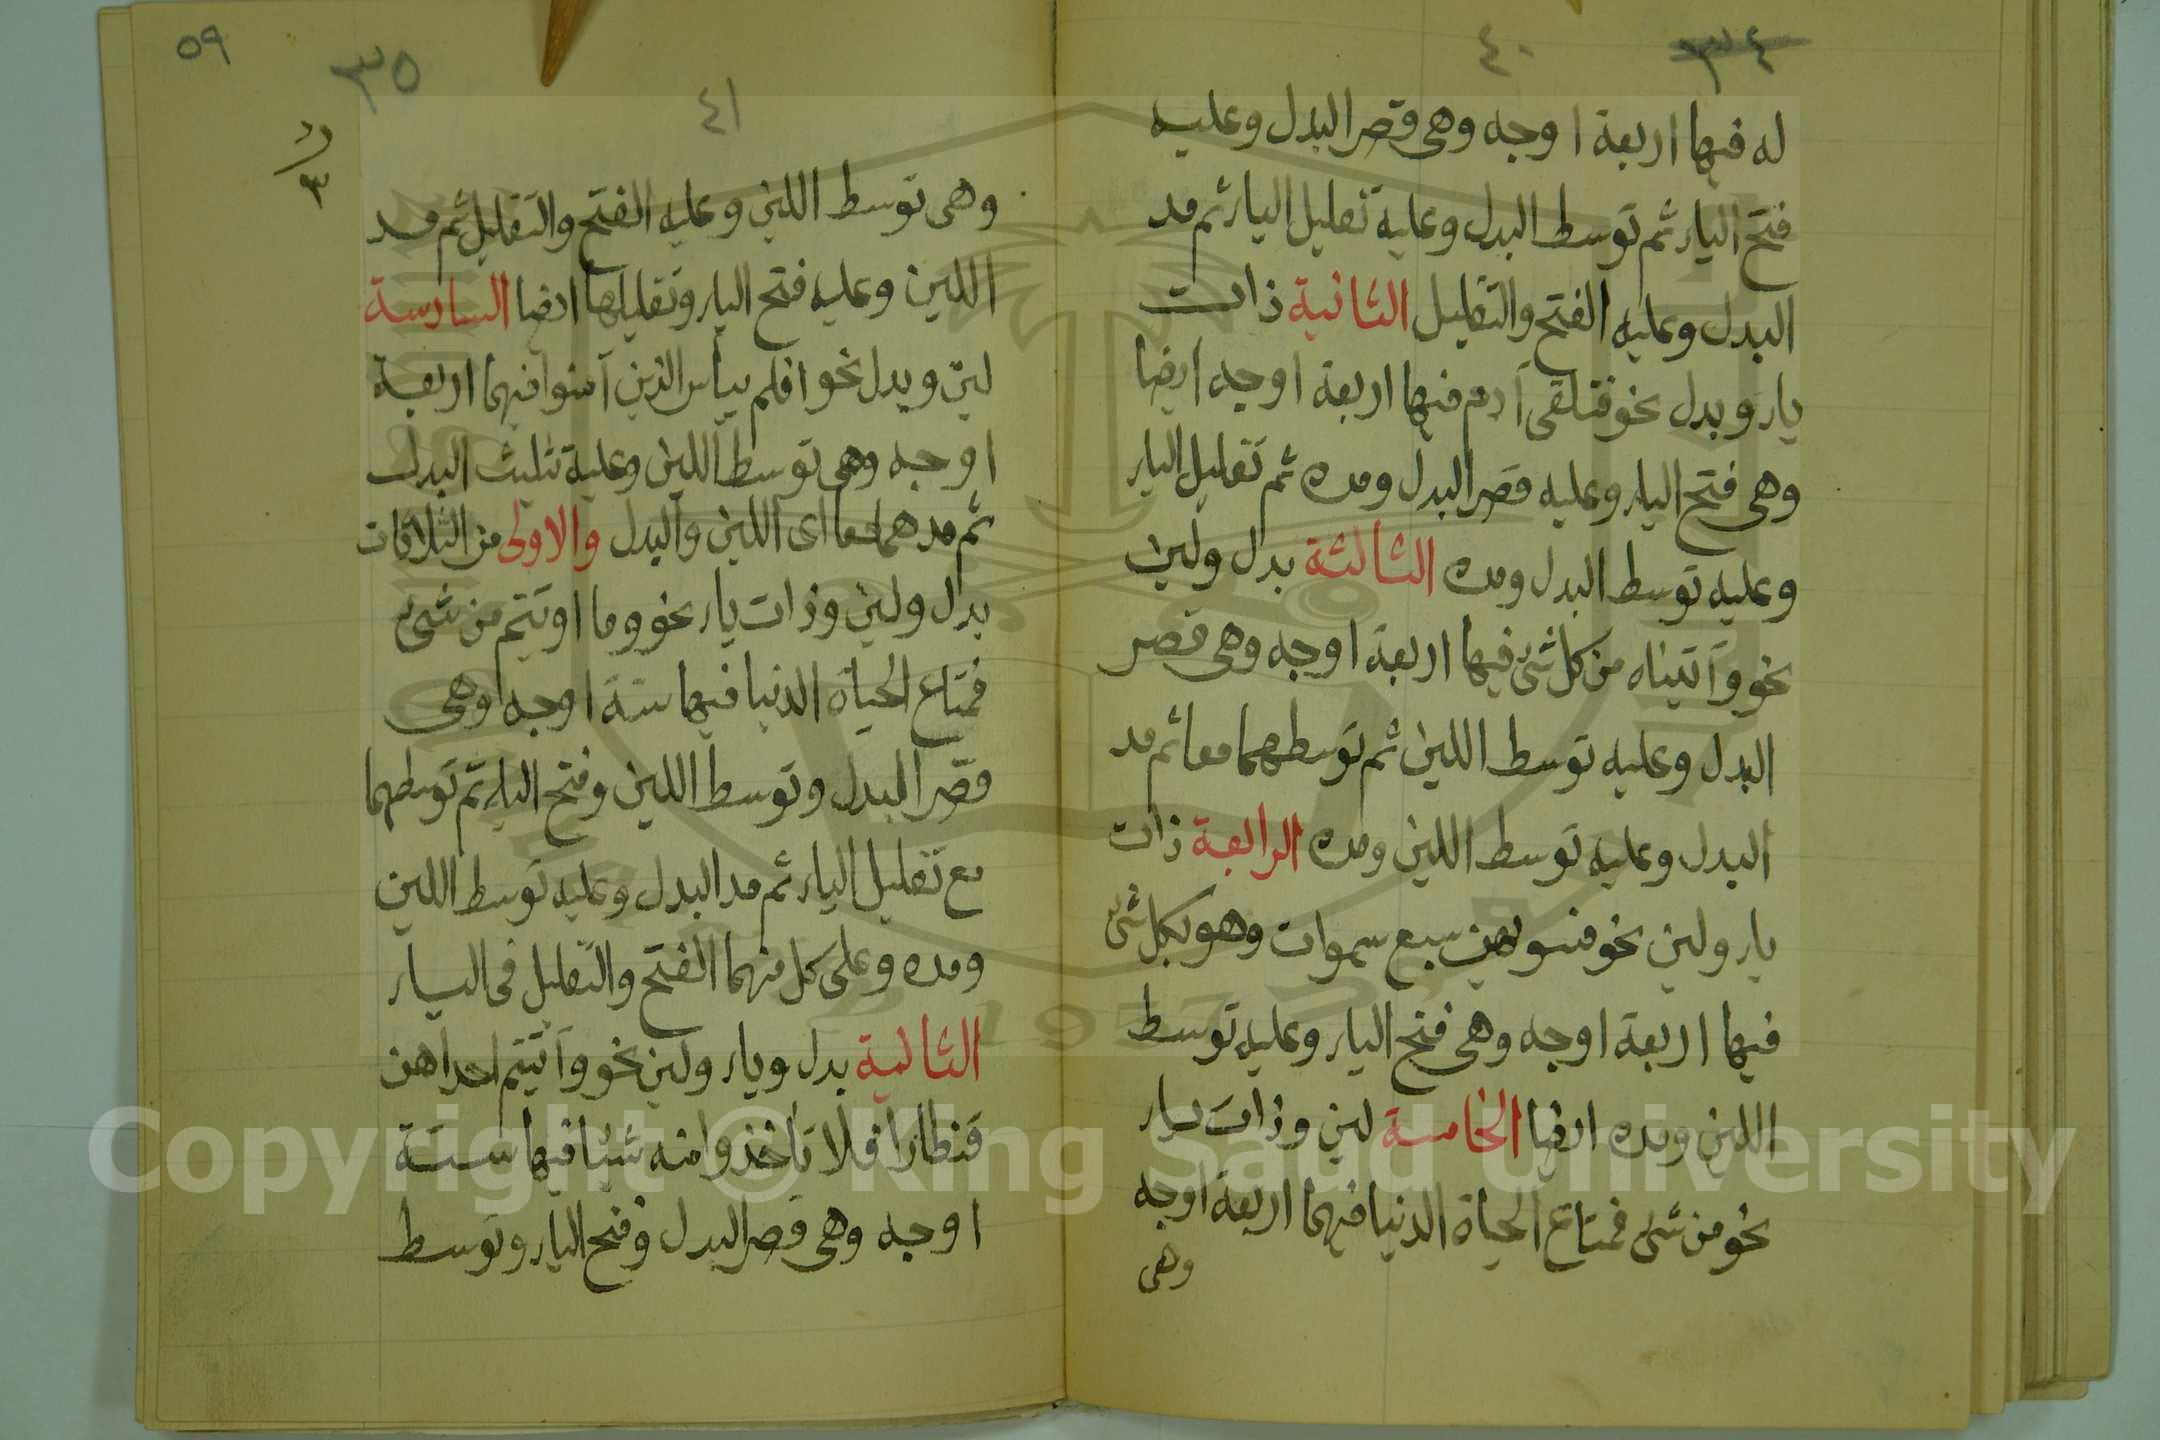 ٤٠
٣٤
له فيها اربعة اوجه وهى قصر البدل وعليه
فتح الياء ثم توسط البدل وعليه تقليل الياء ثم مد
البدل وعليه الفتح والتقليل الثانية ذات
ياء وبدل نحو فتلقى آدم فيها اربعة اوجه ايضا
وهى فتح الياء وعليه قصر البدل ومده ثم تقليل الياء
وعليه توسط البدل ومده الثالثة بدل ولين
نحو وآتيناه من كل شئ فيها اربعة اوجه وهى قصر
البدل وعليه توسط اللين ثم توسطهما معا ثم مد
البدل وعليه توسط اللين ومده الرابعة ذات
ياء ولين نحو فسوهن سبع سموات وهو بكل شئ
فيها اربعة اوجه وهى فتح الياء وعليه توسط
اللين ومده ايضا الخامسة لين وذات ياء
نحو من شئ فمتاع الحياة الدنيا فيها اربعة اوجه
وهى
٥٩
٣٥
٤١
٣
وهى توسط اللين وعليه الفتح والتقليل ثم مد
اللين وعليه فتح الياء وتقليلها ايضا السادسة
لين وبدل نحو افلم ييأس الذين آمنوا فيها اربعة
اوجه وهى توسط اللين وعلية تثليث البدل
ثم مدهما معا اى اللين والبدل والاولى من الثلاثات
بدل ولين وذات ياء نحو وما اوتيتم من شئ
فمتاع الحياة الدنيا فيها ستة اوجه وهى
قصر البدل وتوسط اللين وفتح الياء ثم توسطهما
مع تقليل الياء ثم مد البدل وعليه توسط اللين
ومده وعلى كل منهما الفتح والتقليل فى الياء
الثانية بدل وياء ولين نحو وآتيتم احداهن
قنطارا فلا تأخذوا منه شيئا فيها ستة
اوجه وهى قصر البدل وفتح الياء وتوسط
Copyright © King Saud University
1957